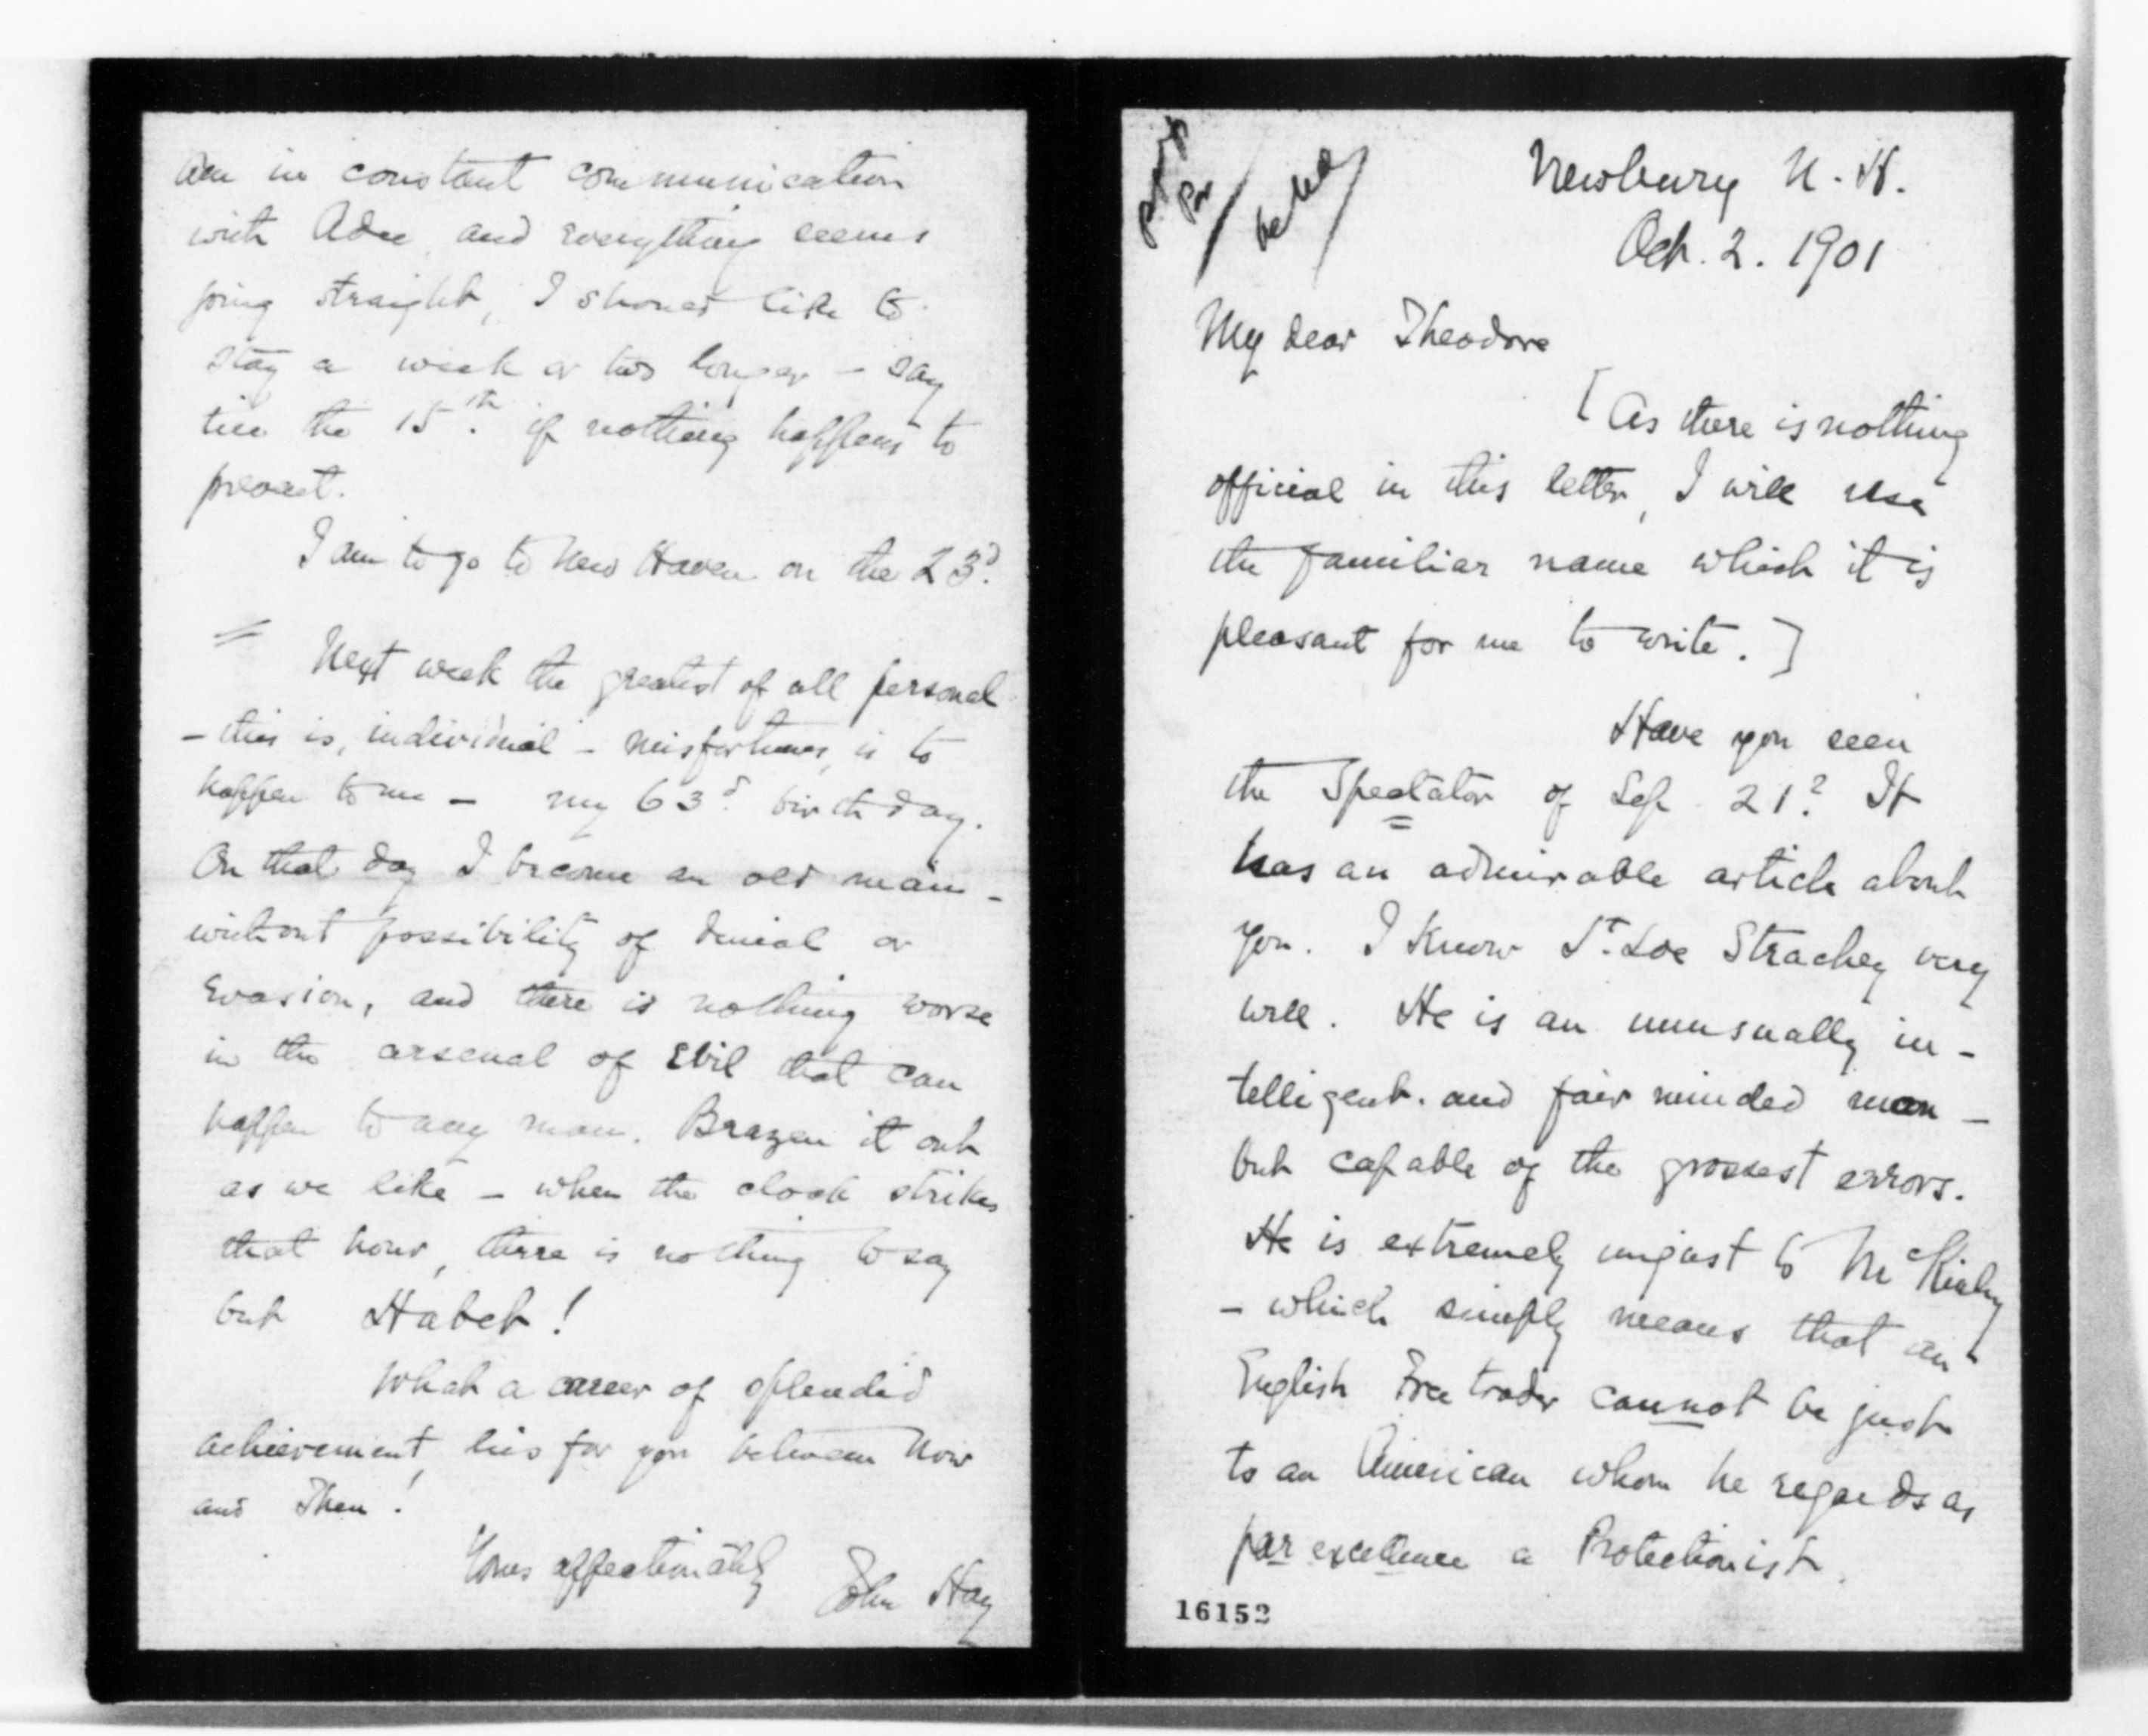 Newbury N.H.
Oct. 2. 1901
My dear Theodore
[As there is nothing
official in this letter, I will use
the familiar name which it is
pleasant for me to write.]
Have you seen
the Spectator of Sep. 21? It
has an admirable article about
you. I know St. Loe Strachey very
well. He is an unusually in-
telligent and fair minded man -
but capable of the grossest errors.
He is extremely unjust to McKinley
- which simply means that an
English Free trader cannot be just
to an American whom he regards as
par excellence a Protectionist.
16152
am in constant communication
with Adee, and everything seems
going straight, I should like to
stay a week or two longer - say
till the 15th. if nothing happens to
prevent.
I am to go to New Haven on the 23d.
= Next week the greatest of all personal
- this is, individual - misfortunes, is to
happen to me - my 63d. birthday.
On that day I become an old man -
without possibility of denial or
evasion, and there is nothing worse
in the arsenal of Evil that can
happen to any man. Brazen it out
as we like - when the clock strikes
that hour, there is nothing to say
but Habet!
What a career of splendid
achievement, lies for you between Now
and Then!
Yours affectionately John Hay